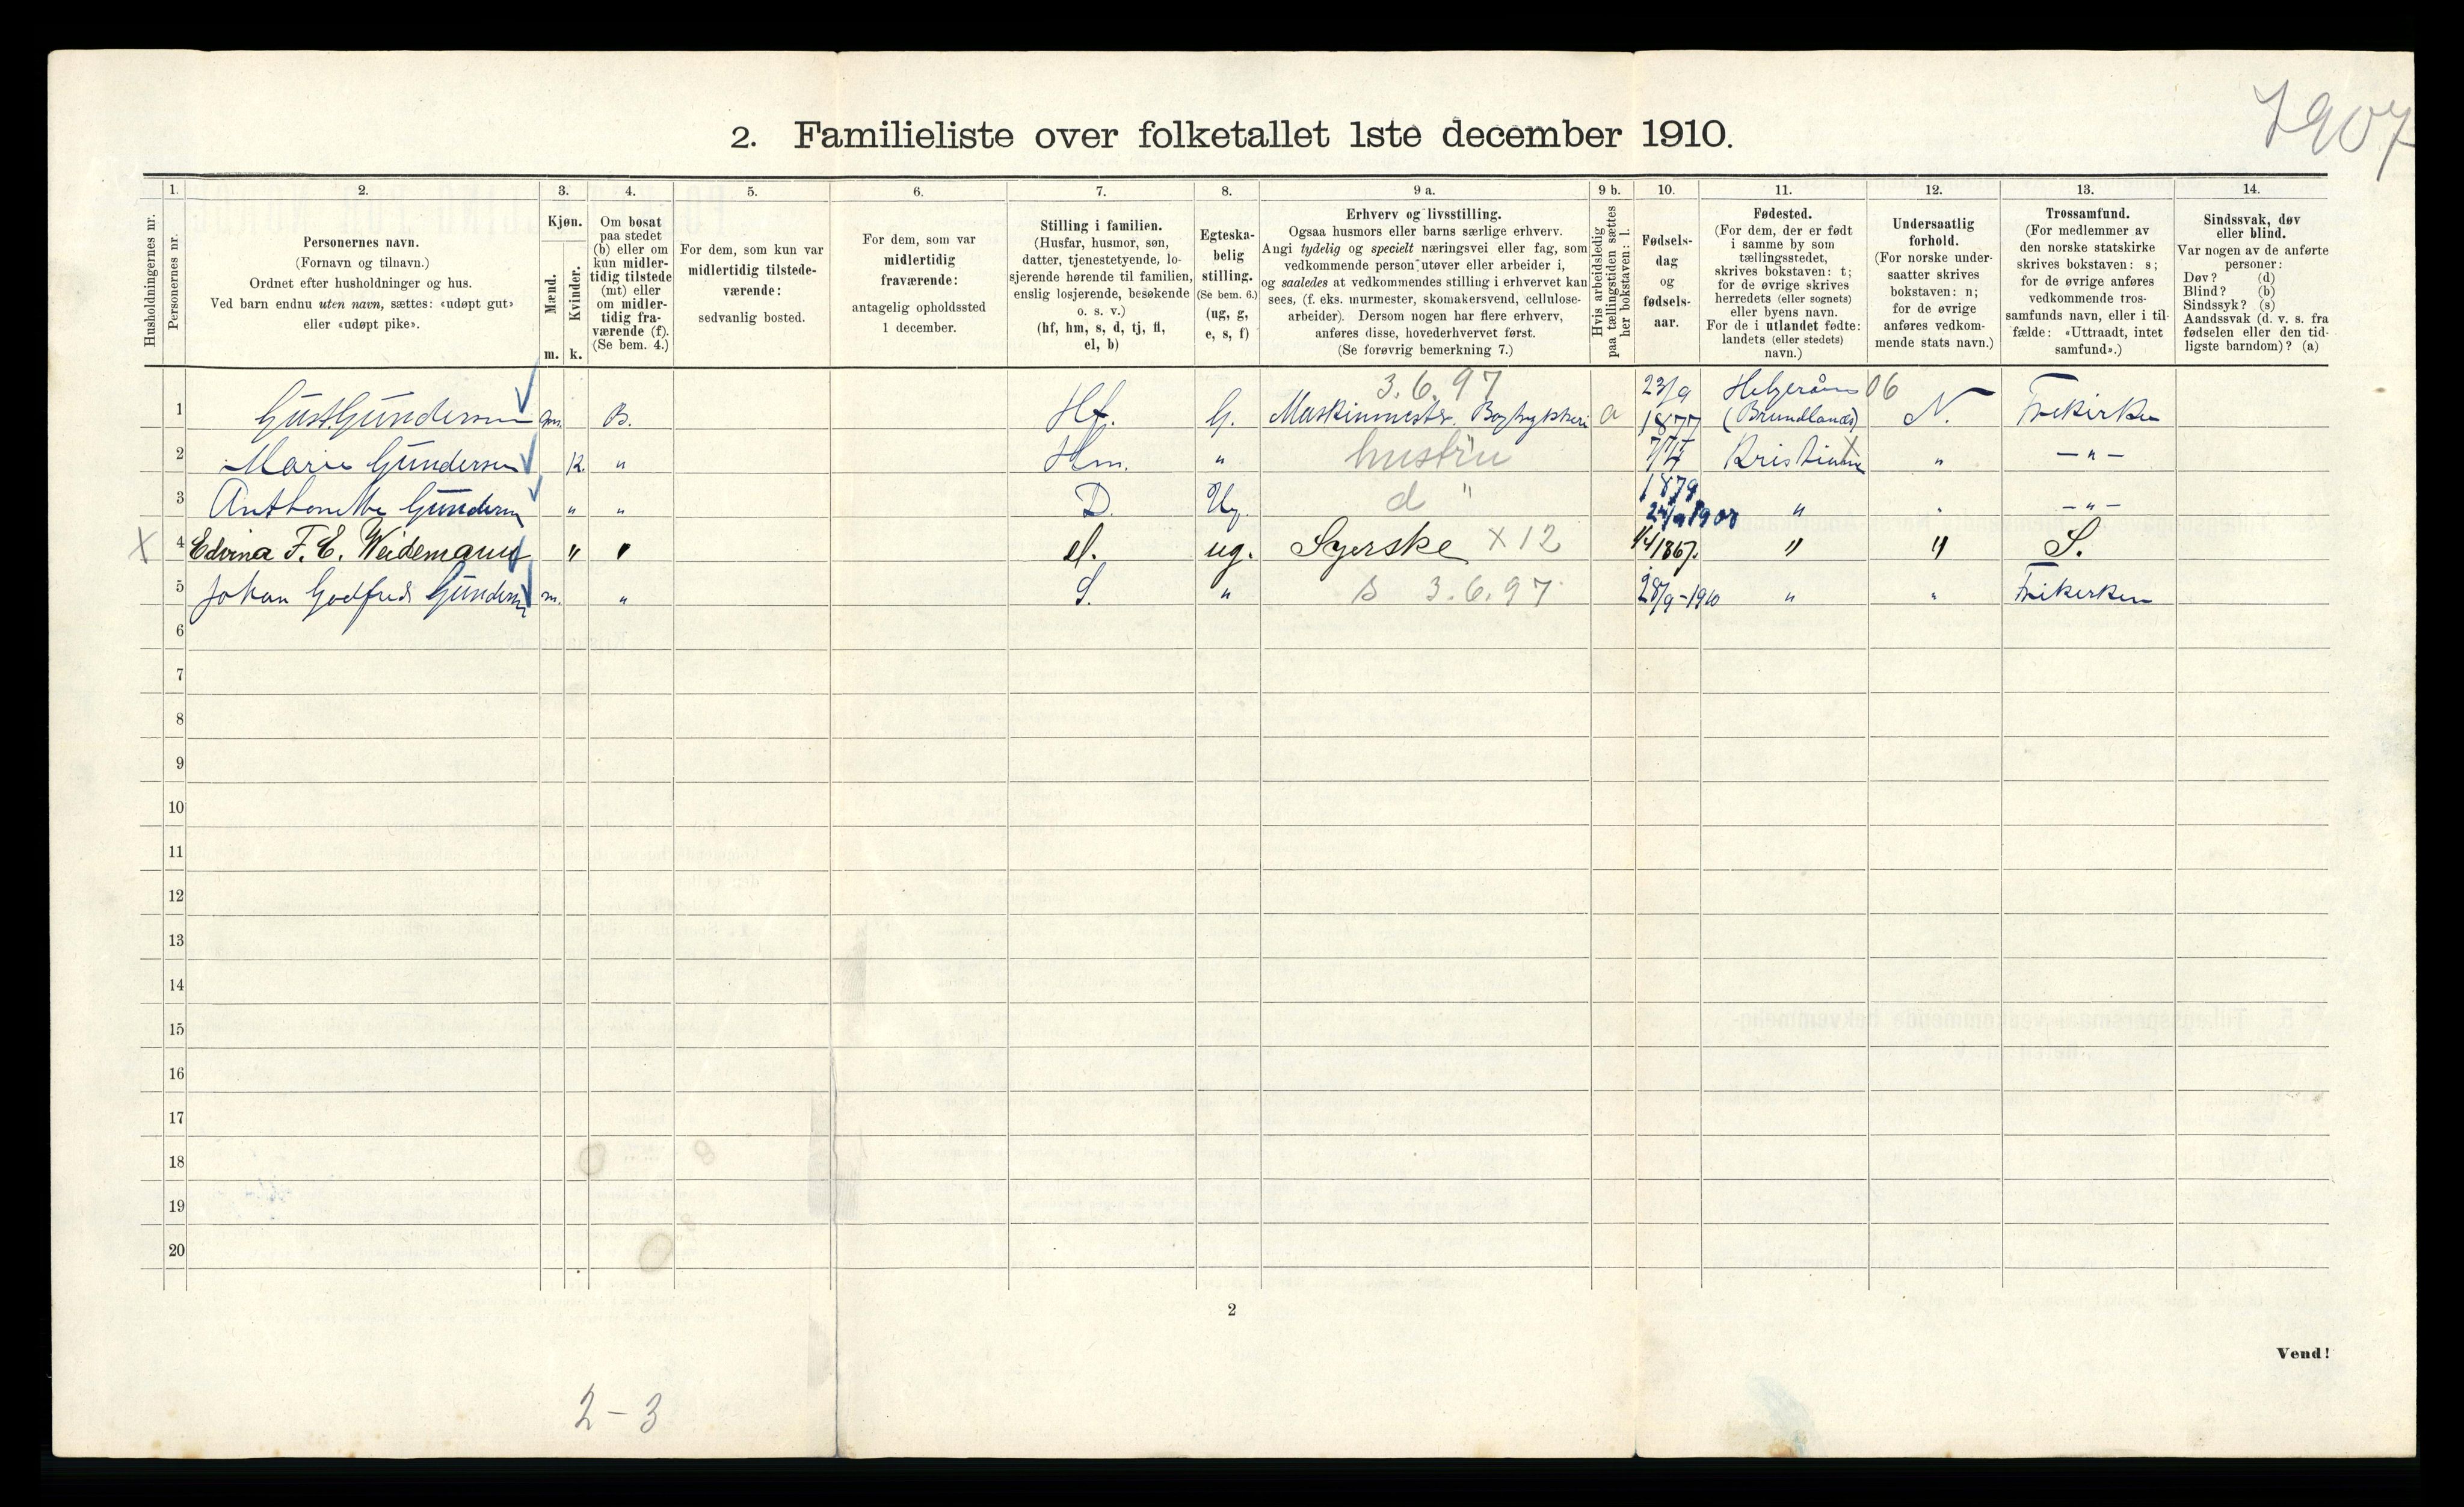 7907
2. Familieliste over folketallet 1ste december 1910.
Husholdningernes nr.
1.
Personernes nr.
2.
Personernes navn.
(Fornavn og tilnavn.)
Ordnet efter husholdninger og hus.
Ved barn endnu uten navn, sættes: «udøpt gut»
eller «udøpt pike».
3.
Kjøn.
Mænd.
Kvinder.
m. k.
4.
Om bosat
paa stedet
(b) eller om
kun midler-
tidig tilstede
(mt) eller
om midler-
tidig fra-
værende (f).
(Se bem. 4.)
5.
For dem, som kun var
midlertidig tilstede-
værende:
sedvanlig bosted.
6.
For dem, som var
midlertidig
fraværende:
antagelig opholdssted
1 december.
7.
Stilling i familien.
(Husfar, husmor, søn,
datter, tjenestetyende, lo-
sjerende hørende til familien,
enslig losjerende, besøkende
o. s. v.)
(hf, hm, s, d, tj, fl,
el, b)
8.
Egteska-
belig
stilling.
(Se bem. 6.)
(ug, g,
e, s, f)
9 a.
Erhverv og livsstilling.
Ogsaa husmors eller barns særlige erhverv.
Angi tydelig og specielt næringsvei eller fag, som
vedkommende person utøver eller arbeider i,
og saaledes at vedkommendes stilling i erhvervet kan
sees, (f. eks. murmester, skomakersvend, cellulose-
arbeider). Dersom nogen har flere erhverv,
anføres disse, hovederhvervet først.
(Se forøvrig bemerkning 7.)
9 b.
Hvis arbeidsledig
paa tællingstiden sættes
her bokstaven: l.
10.
Fødsels-
dag
og
fødsels-
aar.
11.
Fødested.
(For dem, der er født
i samme by som
tællingsstedet,
skrives bokstaven: t;
for de øvrige skrives
herredets (eller sognets)
eller byens navn.
For de i utlandet fødte:
landets (eller stedets)
navn.)
12.
Undersaatlig
forhold.
(For norske under-
saatter skrives
bokstaven: n;
for de øvrige
anføres vedkom-
mende stats navn.)
13.
Trossamfund.
(For medlemmer av
den norske statskirke
skrives bokstaven: s;
for de øvrige anføres
vedkommende tros-
samfunds navn, eller i til-
fælde: «Uttraadt, intet
samfund».)
14.
Sindssvak, døv
eller blind.
Var nogen av de anførte
personer:
Døv? (d)
Blind? (b)
Sindssyk? (s)
Aandssvak (d. v. s. fra
fødselen eller den tid-
ligste barndom)? (a)
3.6.97 23/9 06
1 Gust. Gundersen m. B. Hf. G. Maskinmester. a 1877 N. Frikirken
2 Marie Gundersen K. " Hm. " hustru Kristiania " - " -
1879
3 Anthonette Gundersen " " D. Ug. d " " " - " -
X 4 Edvina F. E. Weidemann " " el. ug. Syerske X 12 1/4 1867. " " S.
5 Johan Godfred Gundersen m. " S. " s 3.6.97 28/9-1910 " " Frikirken
6
7
8
9
10
11
12
13
14
15
16
17
18
19
20
2
Vend!
2 - 3